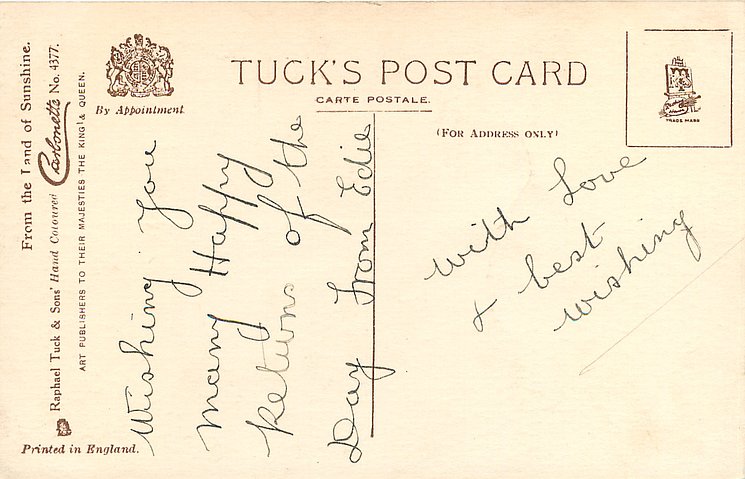 From the Land of Sunshine.
Raphael Tuck & Sons' Hand Coloured Carbonette No. 4377.
ART PUBLISHERS TO THEIR MAJESTIES THE KING & QUEEN.
Printed in England.
By Appointment
TUCK'S POST CARD
CARTE POSTALE.
(FOR ADDRESS ONLY)
TRADE MARK
Wishing you
many Happy
Returns of the
Day from Edie
with Love
& best
wishing